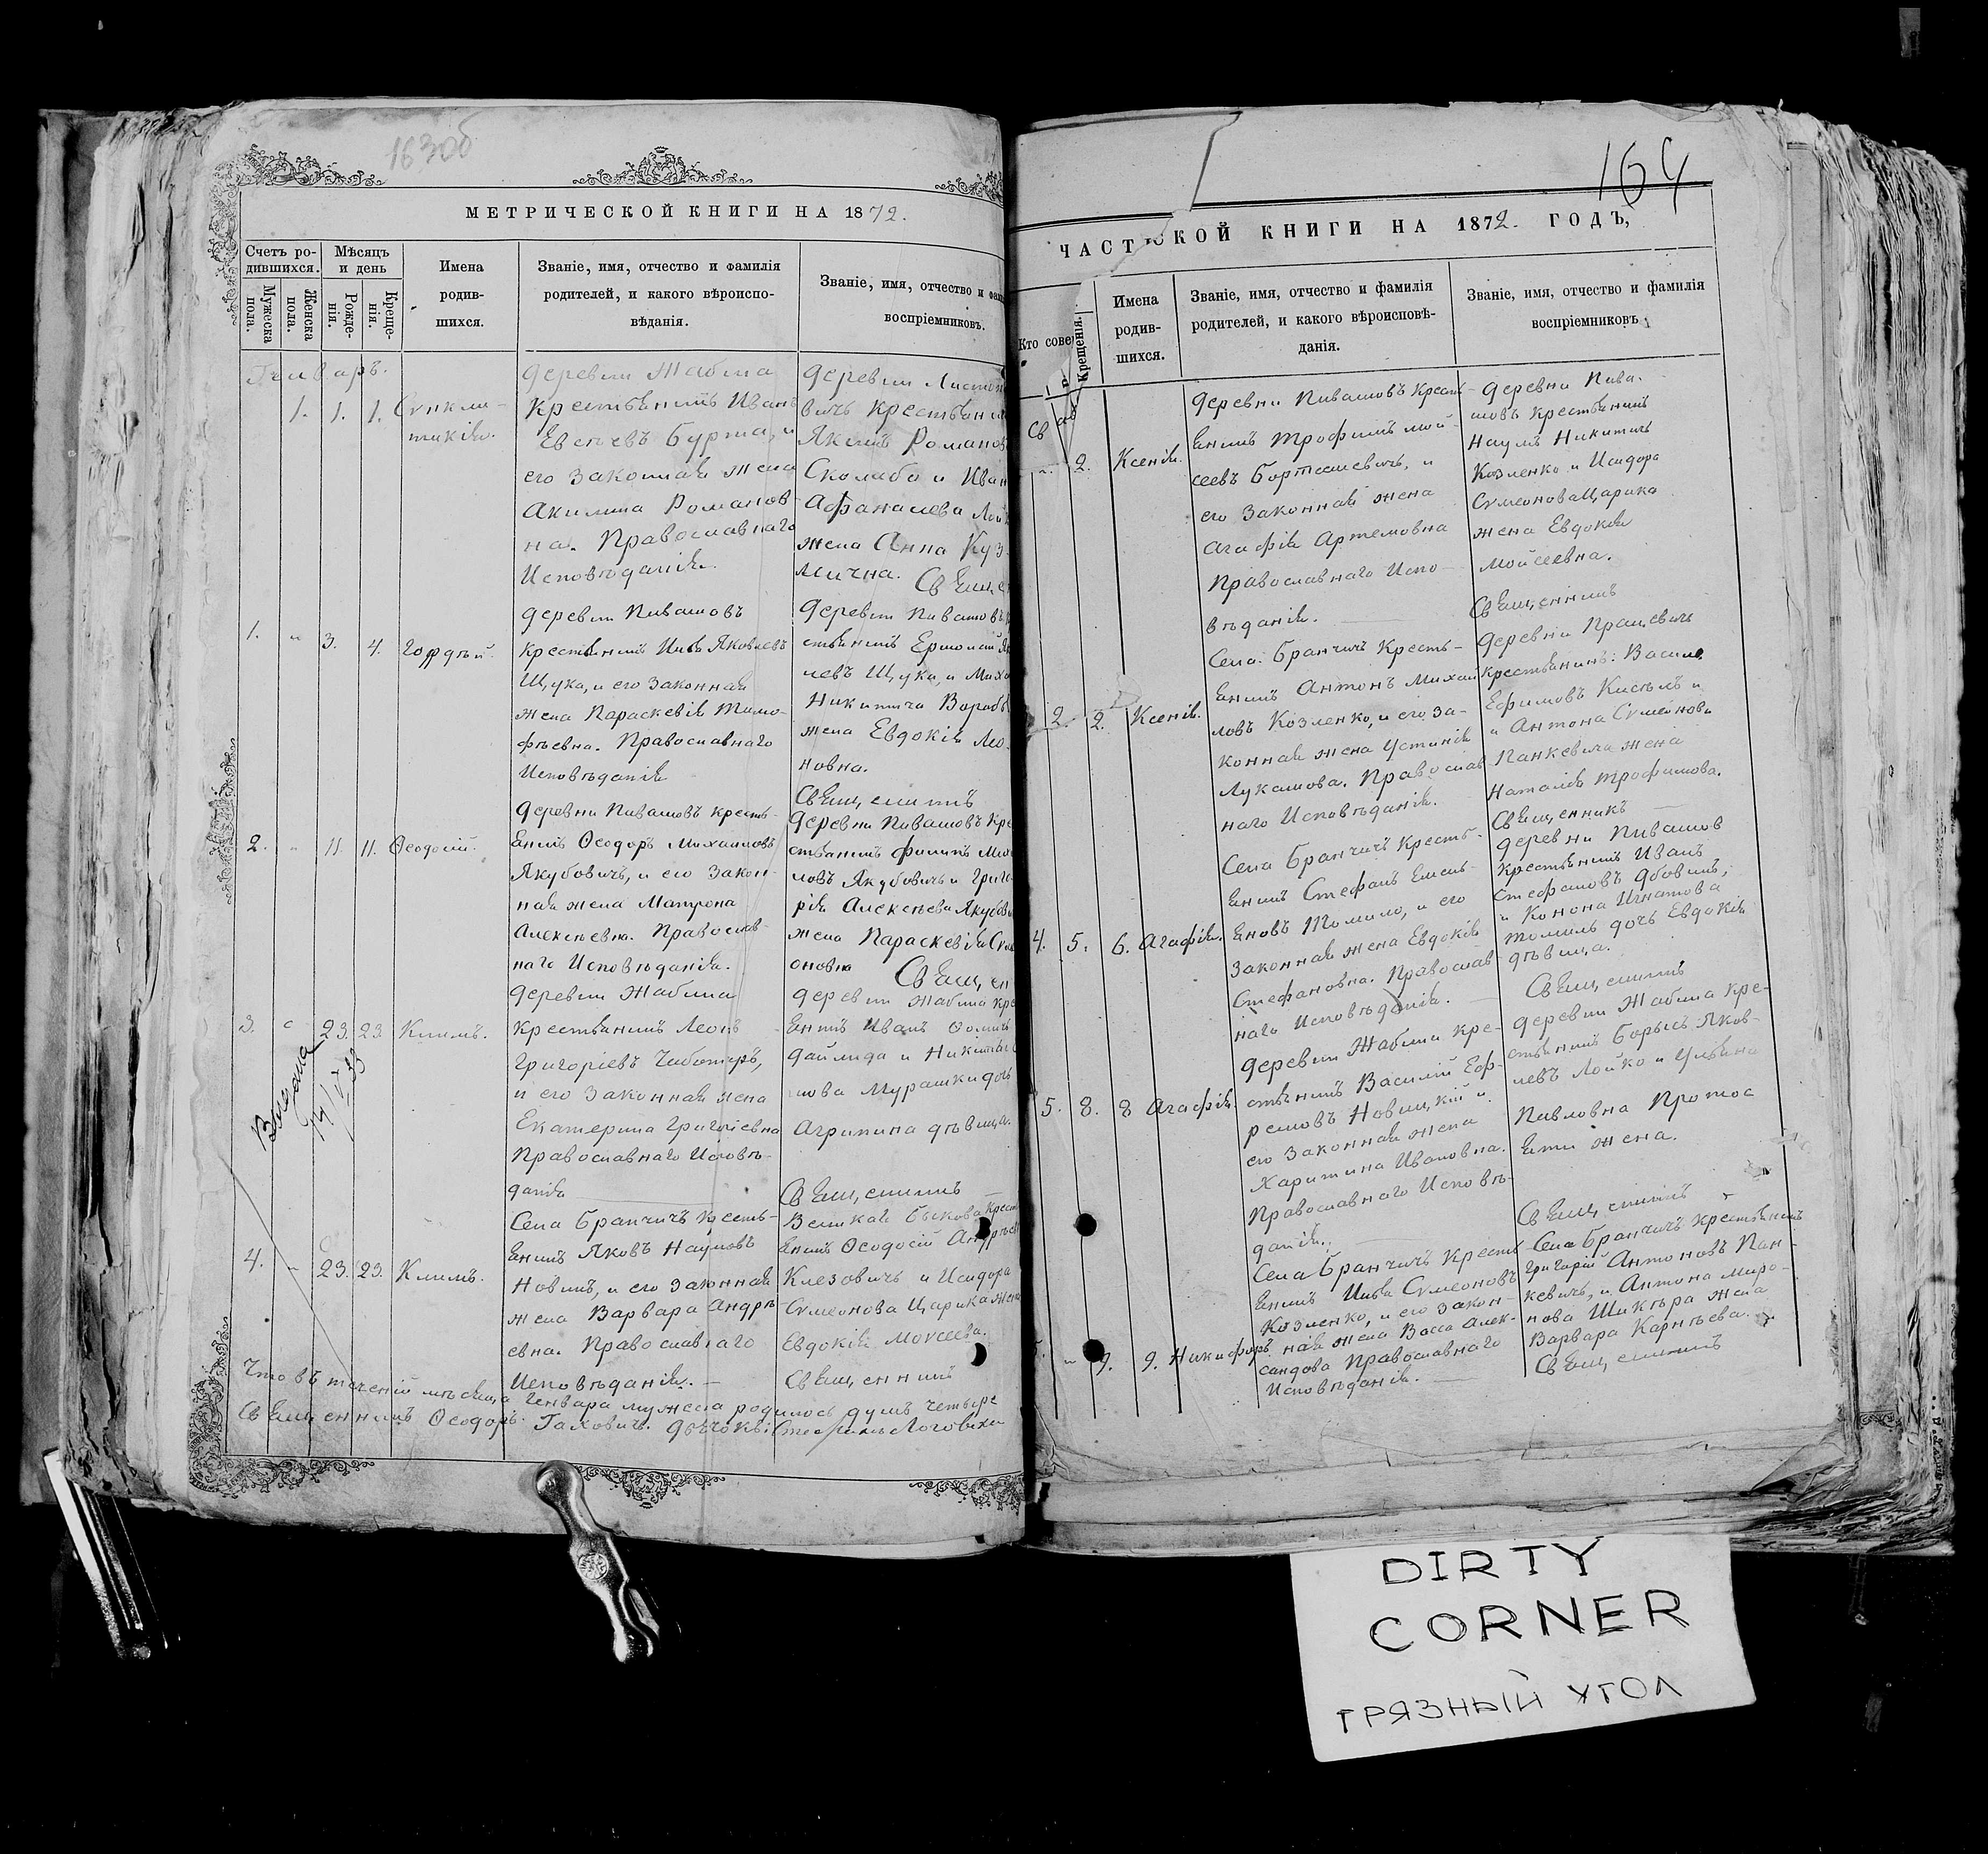 163об
МЕТРИЧЕСКОЙ КНИГИ НА 1872.
Счетъ ро-
дившихся.
Мѣсяцъ
и день
Мужеска
пола.
Женска
пола.
Рожде-
нія.
Креще-
нія.
Имена
родив-
шихся.
Званіе, имя, отчество и фамилія
родителей, и какого вѣроиспо-
вѣданія.
Званіе, имя, отчество и
воспріемниковъ.
Генварь.
1. 1. 1. Сункли-
тикія.
деревни Жабина
Крестьянинъ Иванъ
Евсѣевъ Бурта, и
его законная жена
Акилина Романов-
на. Православнаго
Исповѣданія.
деревни
вичъ крестьянин
Якимъ Романов
Сколабо и Иван
Афанасиева
жена Анна Куз-
мична.
Свящ
1. " 3. 4. Гордѣй.
деревни Пивашовъ
крестьянинъ Ивъ Яковлевъ
Щука, и его законная
жена Параскевія Тимо-
фѣевна. Православнаго
Исповѣданія
деревни Пивашовъ
стьянинъ Ермолай
левъ Щука, и Миха
Никитича Вараб
жена Евдокія Лео-
новна.
Священникъ
2. " 11. 11. Ѳеодосій.
деревни Пивашовъ кресть-
янинъ Ѳеодоръ Михаиловъ
Якубовичъ, и его закон-
ная жена Матрона
Алексѣевна. Православ-
наго Исповѣданія.
деревни Пивашовъ Кре
стьянинъ Филипъ
ловъ Якубовичъ и Григо-
рія Алексѣева Якубов
жена Параскевія
оновна
Священ
3. " 23. 23. Климъ.
деревни Жабина
крестьянинъ Леонъ
Григоріевъ Чаботаръ,
и его законная жена
Екатерина Григоріевна
Православнаго Исповѣ-
данія
деревни Жабина кре
янинъ Иванъ Ѳомичъ
Дайлида и Никиты
нова Мурашки дочь
Агрипина дѣвица.
Священникъ
4. " 23. 23. Климъ.
Села Бранчичъ кресть-
янинъ Яковъ Наумовъ
Новикъ, и его законная
жена Варвара Андре-
евна. Православнаго
Исповѣданія.
Великая Быкова крест
янинъ Ѳеодосій Андрѣев
Клезовичъ и Исидора
Сумеонова Царика жена
Евдокія Моисеева.
Священникъ
Что въ теченіи мѣсяца Генваря мужеска родилось душъ четыре
Священникъ Ѳеодоръ
ЧАСТ СКОЙ КНИГИ НА 1872. ГОДЪ,
164
Кто сове
Крещенія.
Имена
родив-
шихся.
Званіе, имя, отчество и фамилія
родителей, и какого вѣроисповѣ-
данія.
Званіе, имя, отчество и фамилія
воспріемниковъ
Св
2. Ксенія.
деревни Пивашовъ Кресть-
янинъ Трофимъ Мой-
сеевъ Борташевичъ, и
его законная жена
Агафія Артемовна
Православнаго Испо-
вѣданія.
деревни Пива-
шовъ крестьянинъ
Наумъ Никитичъ
Козленко и Исидора
Сумеонова Царика
жена Евдокія
Мойсеевна.
Священникъ
2. 2. Ксенія.
Села Бранчичъ Кресть-
янинъ Антонъ Михай-
ловъ Козленко, и его за-
конная жена Устинія
Лукашова. Православ-
наго Исповѣданія.
деревни Працевичъ
крестьянинъ: Василь
Ефимовъ Кисѣль и
и Антона Сумеонова
Панкевича жена
Наталія Трофимова.
Священникъ
4. 5. 6. Агафія.
Села Бранчичъ Кресть-
янинъ Стефанъ Емель-
яновъ Томило, и его
законная жена Евдокія
Стефановна. Православ-
наго Исповѣданія.
деревни Пивашов
крестьянинъ Иванъ
Стефановъ
и Конона Игнатова
Томиль дочь Евдокія
дѣвица.
Священникъ
5. 8. 8 Агафія.
деревни Жабина кре-
стьянинъ Василій Еф-
ремовъ Новицкій и
его законная жена
Харитина Ивановна.
Православнаго Исповѣ-
данія.
деревни Жабина кре-
стьянинъ Борысъ Яков-
левъ Лойко и Ульяна
Павловна Протос
яти жена.
Священникъ
" 9. 9. Никифоръ.
Села Бранчичъ Кресть-
янинъ Ивъ Сумеоновъ
Козленко, и его закон-
ная жена Васса Алек-
сандова Православнаго
Исповѣданія.
Села Бранчичъ крестьянинъ
Григорій Антоновъ Пан-
кевичъ, и Антона Миро-
нова Шикѣра жена
Варвара Карнѣева.
Священникъ
DIRTY
CORNER
ГРЯЗНЫЙ УГОЛ